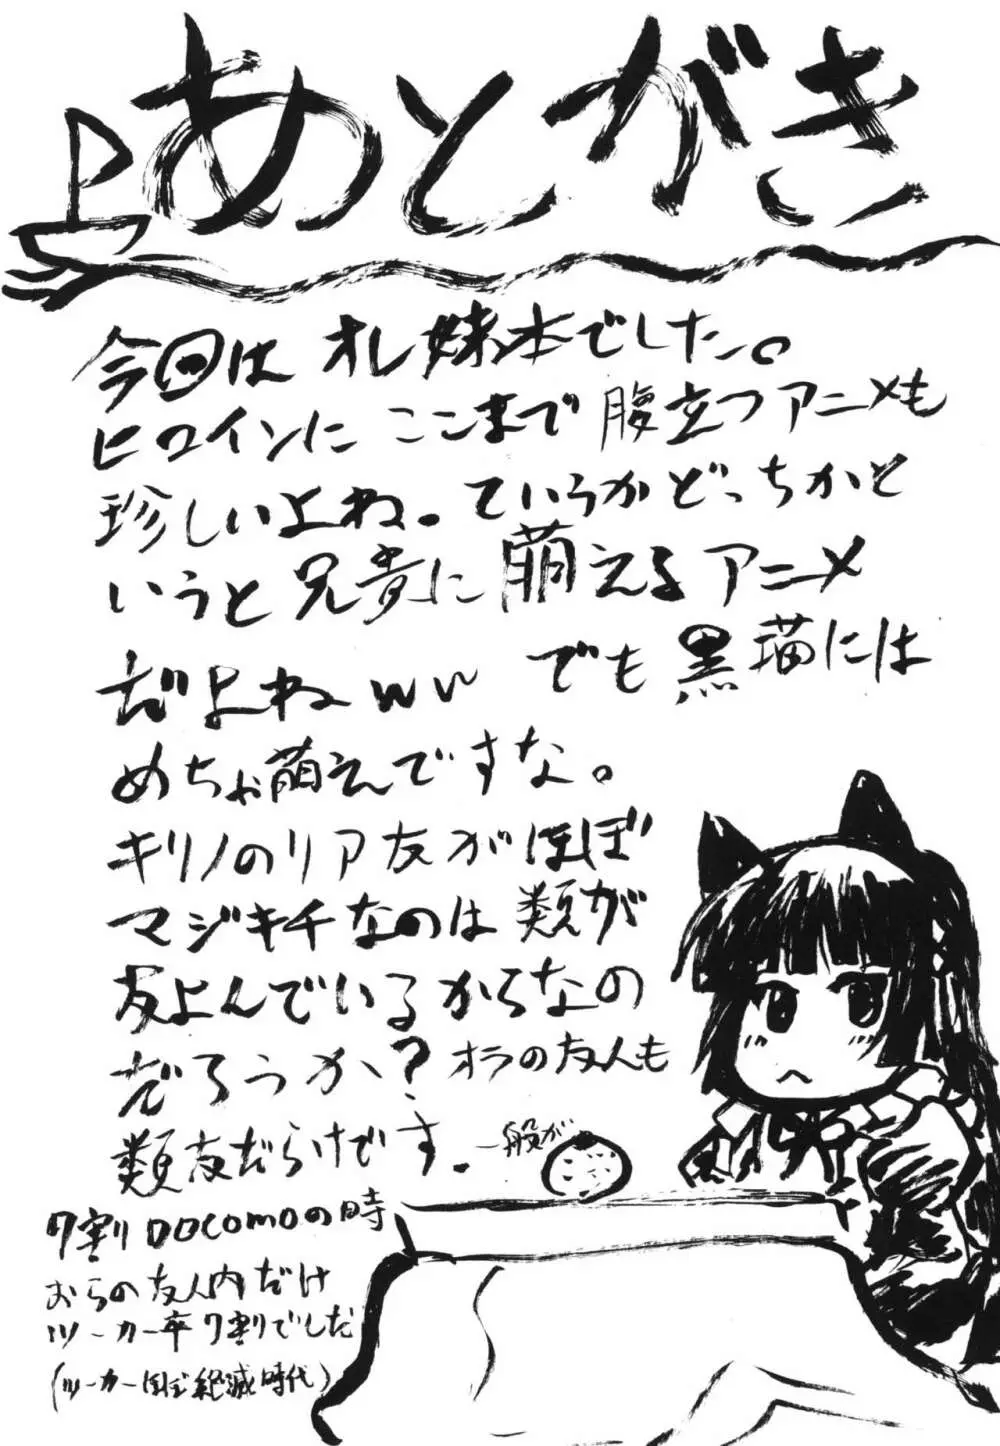 あとがき
今回は オレ妹本でした。
ヒロインに ここまで 腹立つアニメも
珍しいよね。ていうかどっちかと
いうと 兄貴に 萌えるアニメ
だよねww でも 黒猫には
めちゃ萌えですな。
キリノのリア友がほぼ
マジキチなのは 類が
友よんでいるからなの
だろうか? オラの友人も
類友だらけです。一般が
7割DOCOMOの時
おらの友人内だけ
ツーカー率7割でしだ
(ツーカーほぼ絶滅時代)